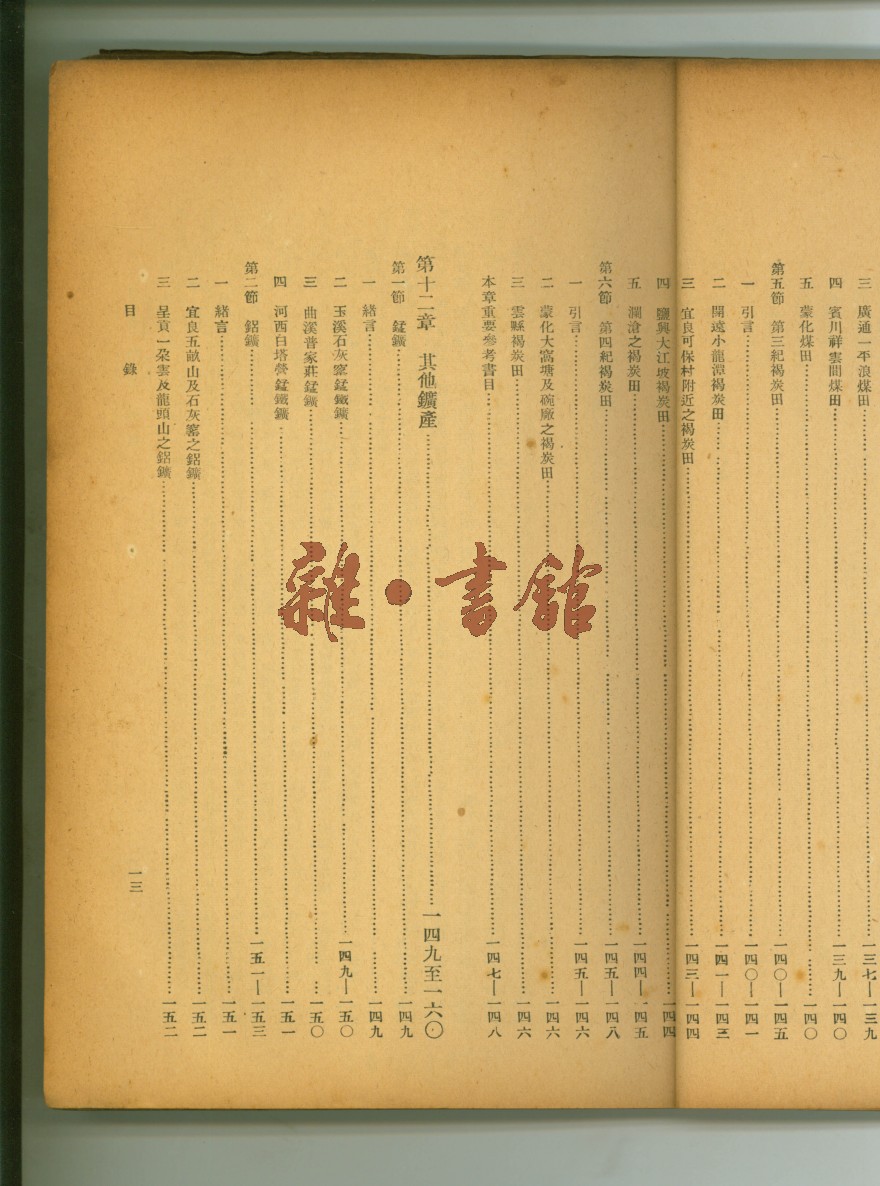 三 廣通一平浪煤田 一三七—一三九
四 賓川祥雲間煤田 一三九—一四〇
五 蒙化煤田 一四〇
第五節 第三紀褐炭田 一四〇—一四五
一 引言 一四〇—一四一
二 開遠小龍潭褐炭田 一四一—一四三
三 宜良可保村附近之褐炭田 一四三—一四四
四 鹽興大江坡褐炭田 一四四
五 瀾滄之褐炭田 一四四—一四五
第六節 第四紀褐炭田 一四五—一四八
一 引言 一四五—一四六
二 蒙化大窩塘及碗廠之褐炭田 一四六
三 雲縣褐炭田 一四六
本章重要參考書目 一四七—一四八
第十二章 其他鑛產 一四九至一六〇
第一節 錳鑛 一四九
一 緒言 一四九
二 玉溪石灰窰錳鐵鑛 一四九—一五〇
三 曲溪普家莊錳鑛 一五〇
四 河西白塔營錳鐵鑛 一五一
第二節 鋁鑛 一五一—一五三
一 緒言 一五一
二 宜良五畝山及石灰窰之鋁鑛 一五二
三 呈貢一朶雲及龍頭山之鋁鑛 一五二
目錄
一三
雜·書館